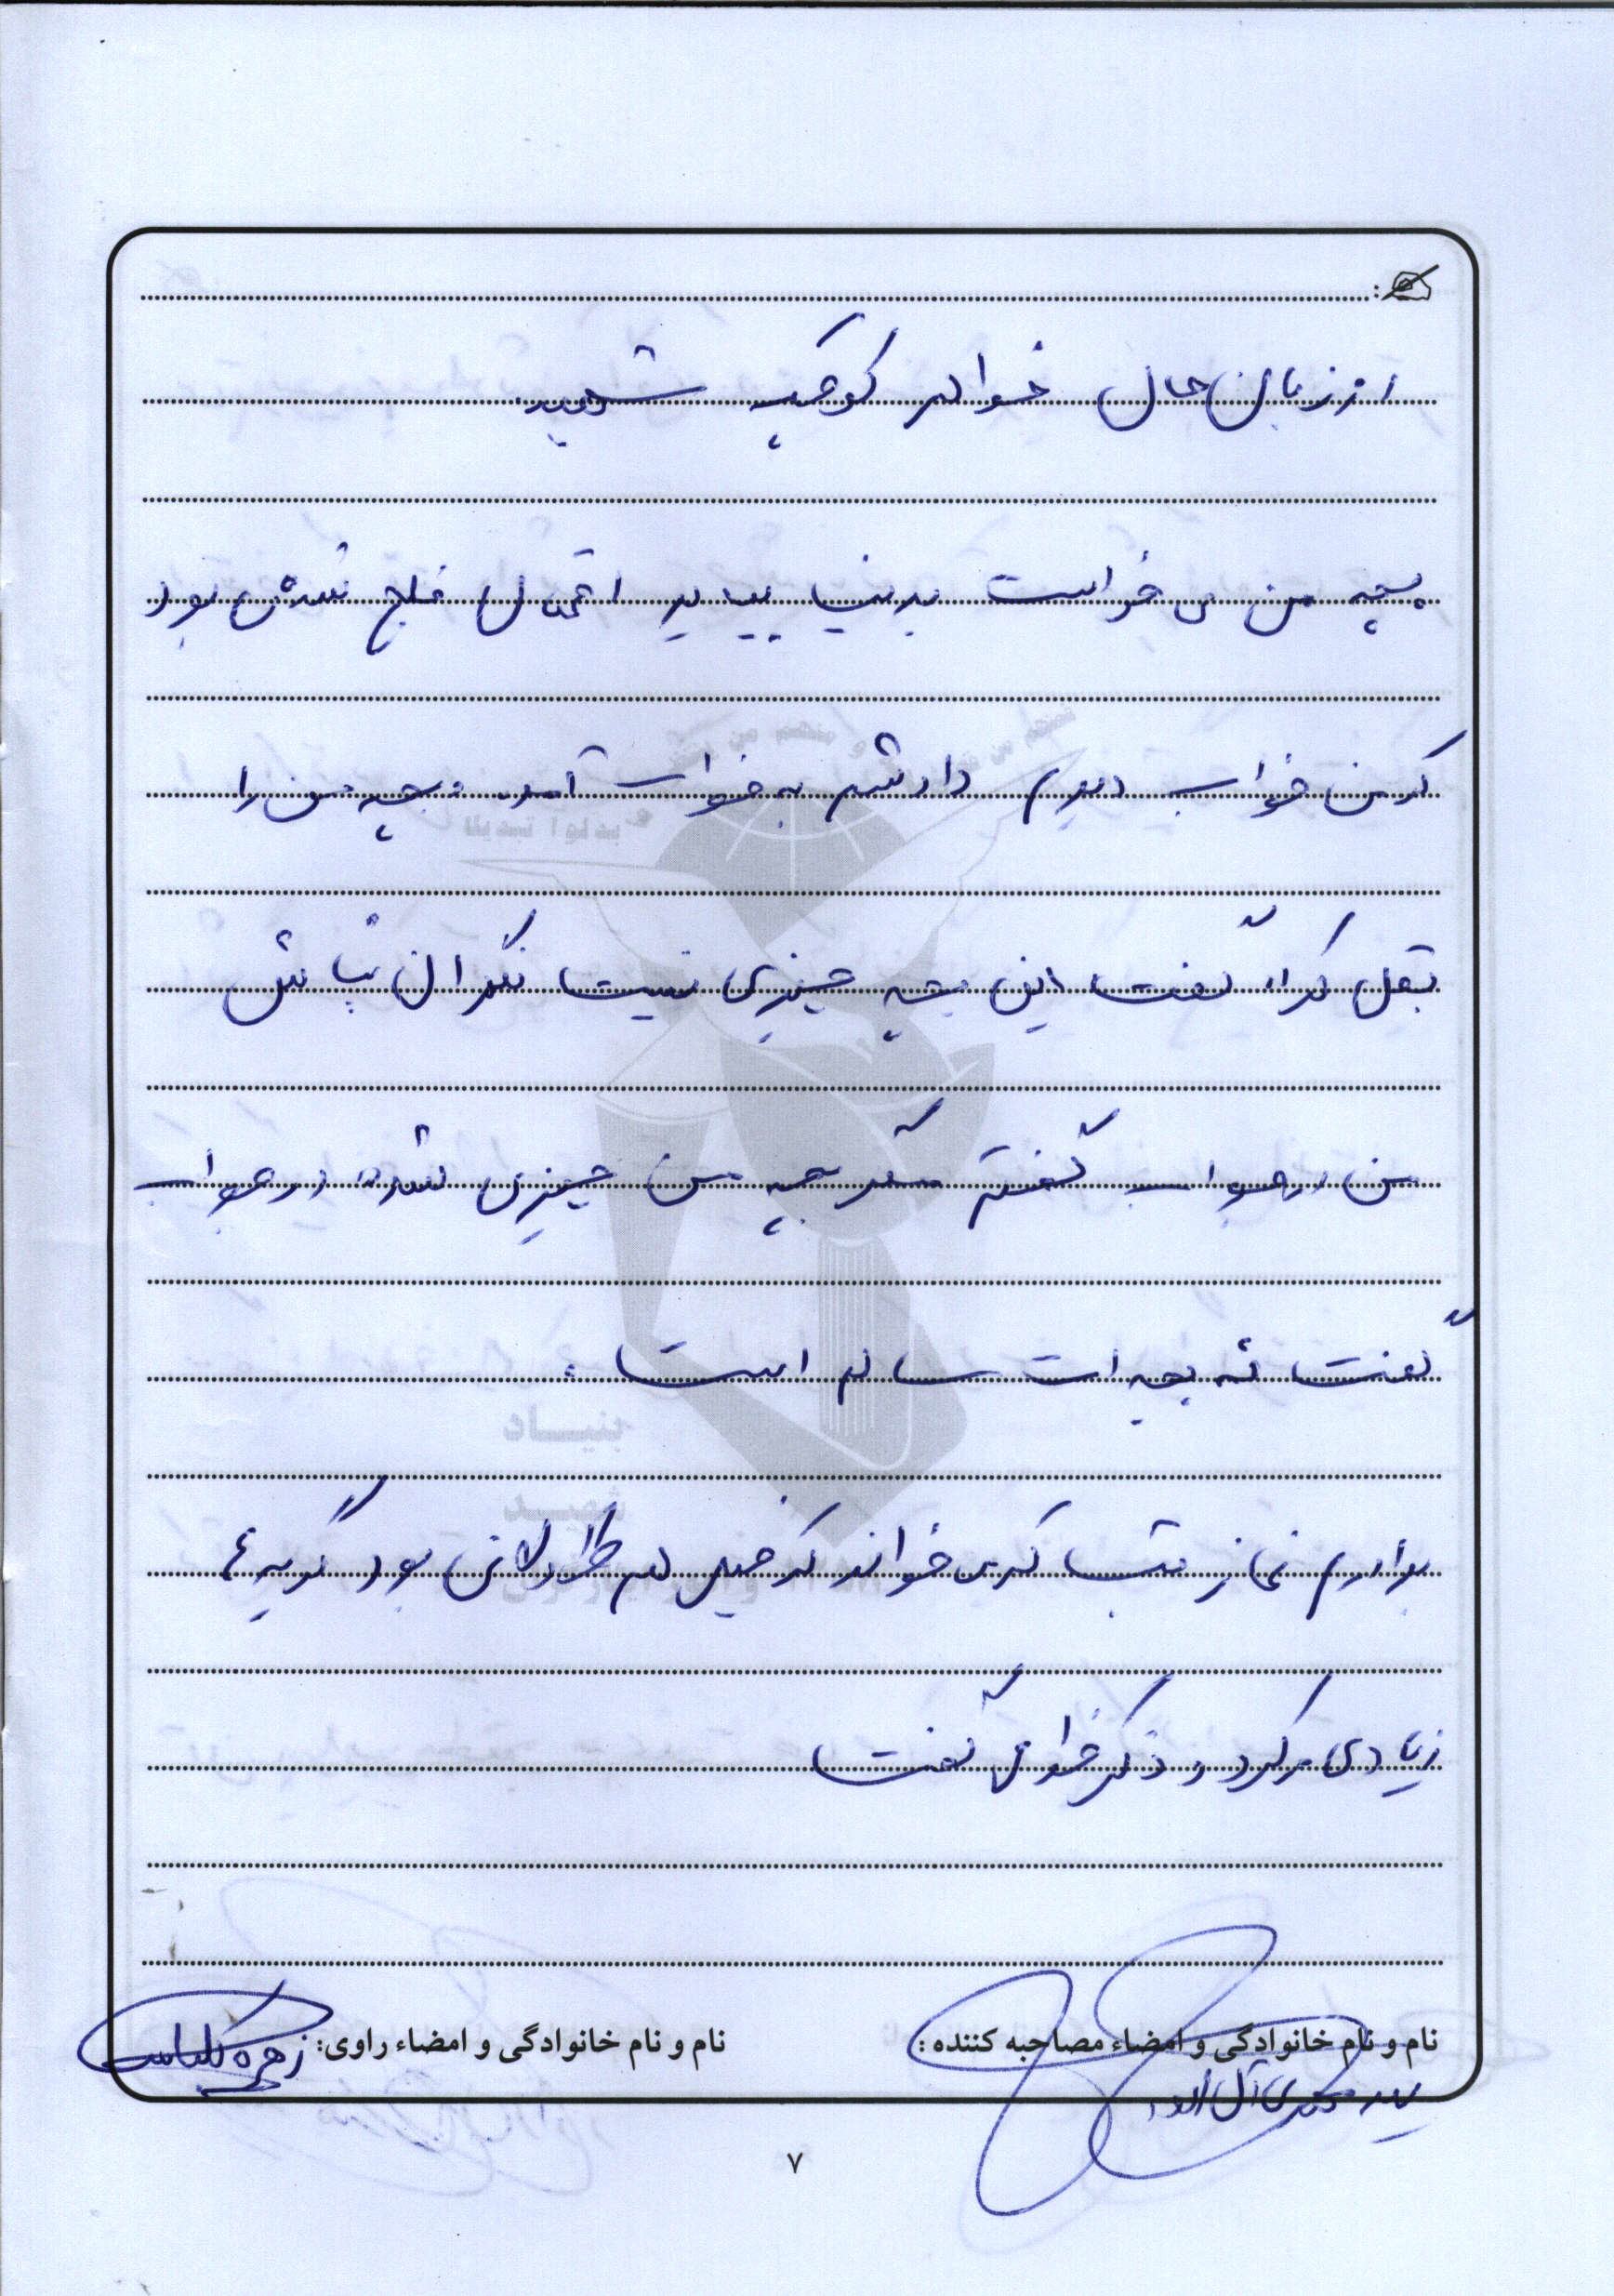 از زبان حال خواهر کوچک شهید
بچه من می خواست بدنیا بیاید احتمال فلج شدن بود
که من خواب دیدم داداشم به خواب آمده و بچه من را
بغل کرد گفت این بچه چیزی نیست نگران نباش
من در جواب گفتم مگر بچه من چیزی نشده در جواب
گفت نه بچه ات سالم است.
برادرم نماز شب که می خواند که خیلی هم طولانی بود گریه
زیادی می کرد و ذکر خدا می گفت
نام و نام خانوادگی و امضاء مصاحبه کننده :
نام و نام خانوادگی و امضاء راوی: زهره
۷